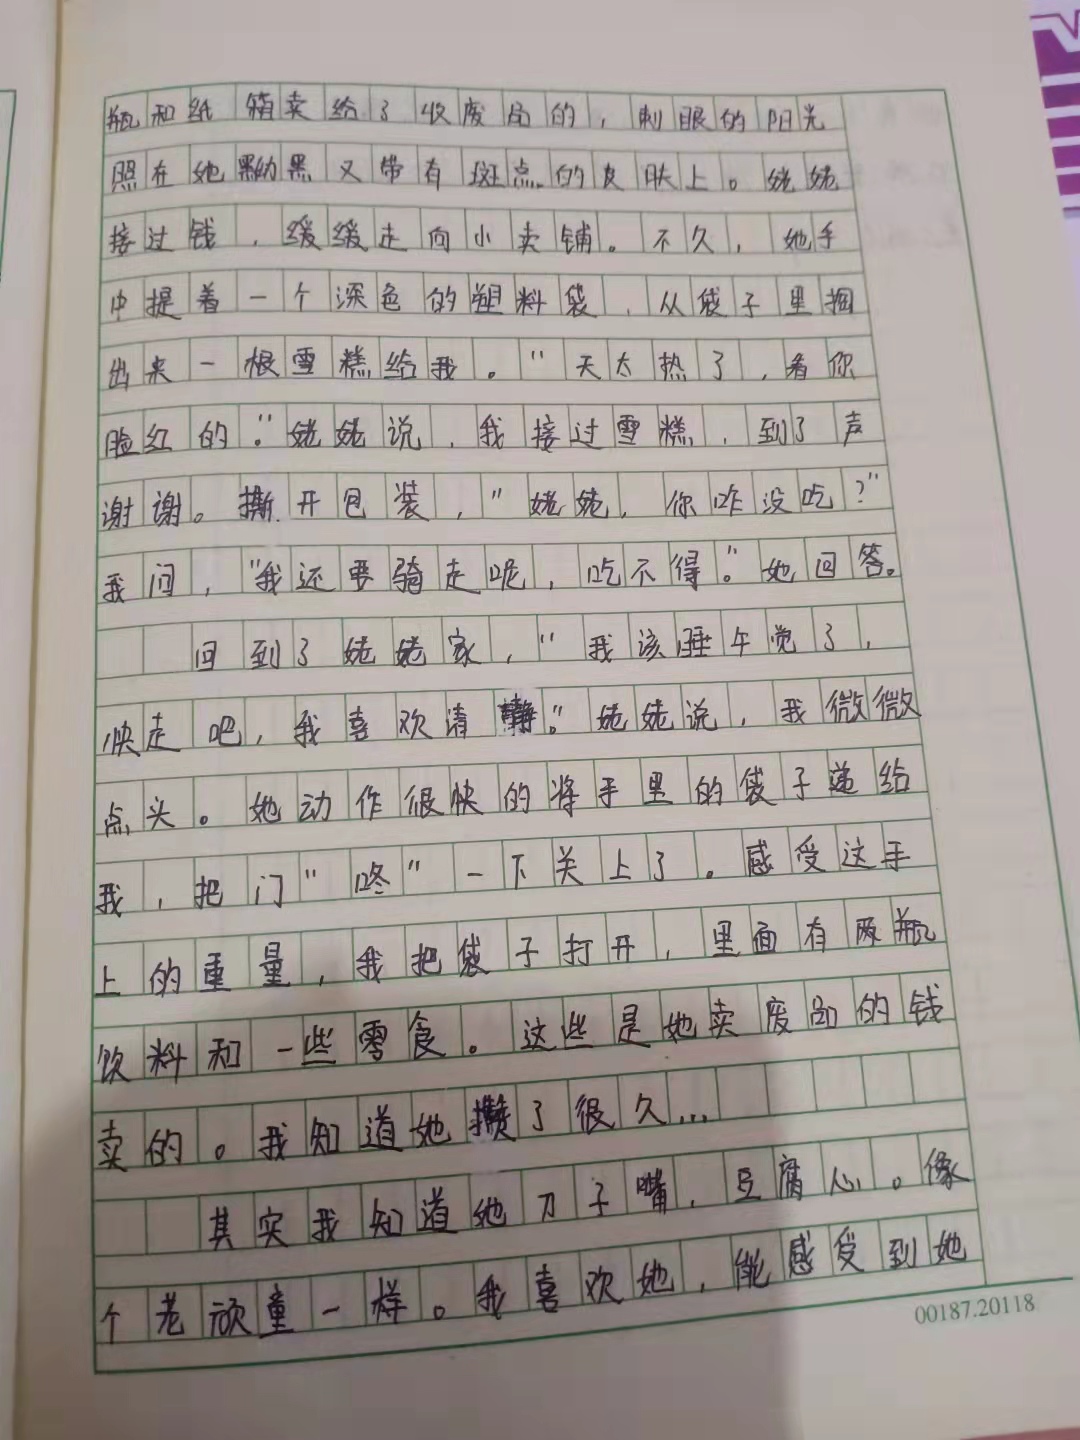 瓶和纸箱卖给了收废品的，刺眼的阳光
照在她黝黑又带有斑点的皮肤上。姥姥
接过钱，缓缓走向小卖铺。不久，她手
中提着一个深色的塑料袋，从袋子里掴
出来一根雪糕给我。“天太热了，看你
脸红的。”姥姥说，我接过雪糕，到了声
谢谢。撕开包装，“姥姥，你咋没吃？”
我问，“我还要骑走呢，吃不得。”她回答。
回到了姥姥家，“我该睡午觉了，
快走吧，我喜欢请静。”姥姥说，我微微
点头。她动作很快的将手里的袋子递给
我，把门“咚”一下关上了。感受这手
上的重量，我把袋子打开，里面有两瓶
饮料和一些零食。这些是她卖废品的钱
卖的。我知道她攒了很久…
其实我知道她刀子嘴，豆腐心。像
个老顽童一样。我喜欢她，能感受到她
00187.20118